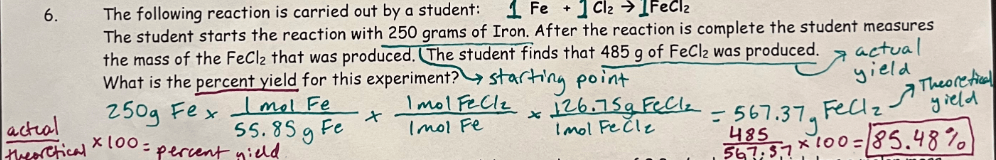 6. The following reaction is carried out by a student: 1 Fe + 1 Cl₂ → 1 FeCl₂
The student starts the reaction with 250 grams of Iron. After the reaction is complete the student measures
the mass of the FeCl₂ that was produced. The student finds that 485 g of FeCl₂ was produced. → actual yield
What is the percent yield for this experiment? → starting point
250g Fe x 1 mol Fe / 55.85 g Fe x 1 mol FeCl₂ / 1 mol Fe x 126.75g FeCl₂ / 1 mol FeCl₂ = 567.37g FeCl₂ → Theoretical yield
actual / theoretical x 100 = percent yield
485 / 567.37 x 100 = 85.48%